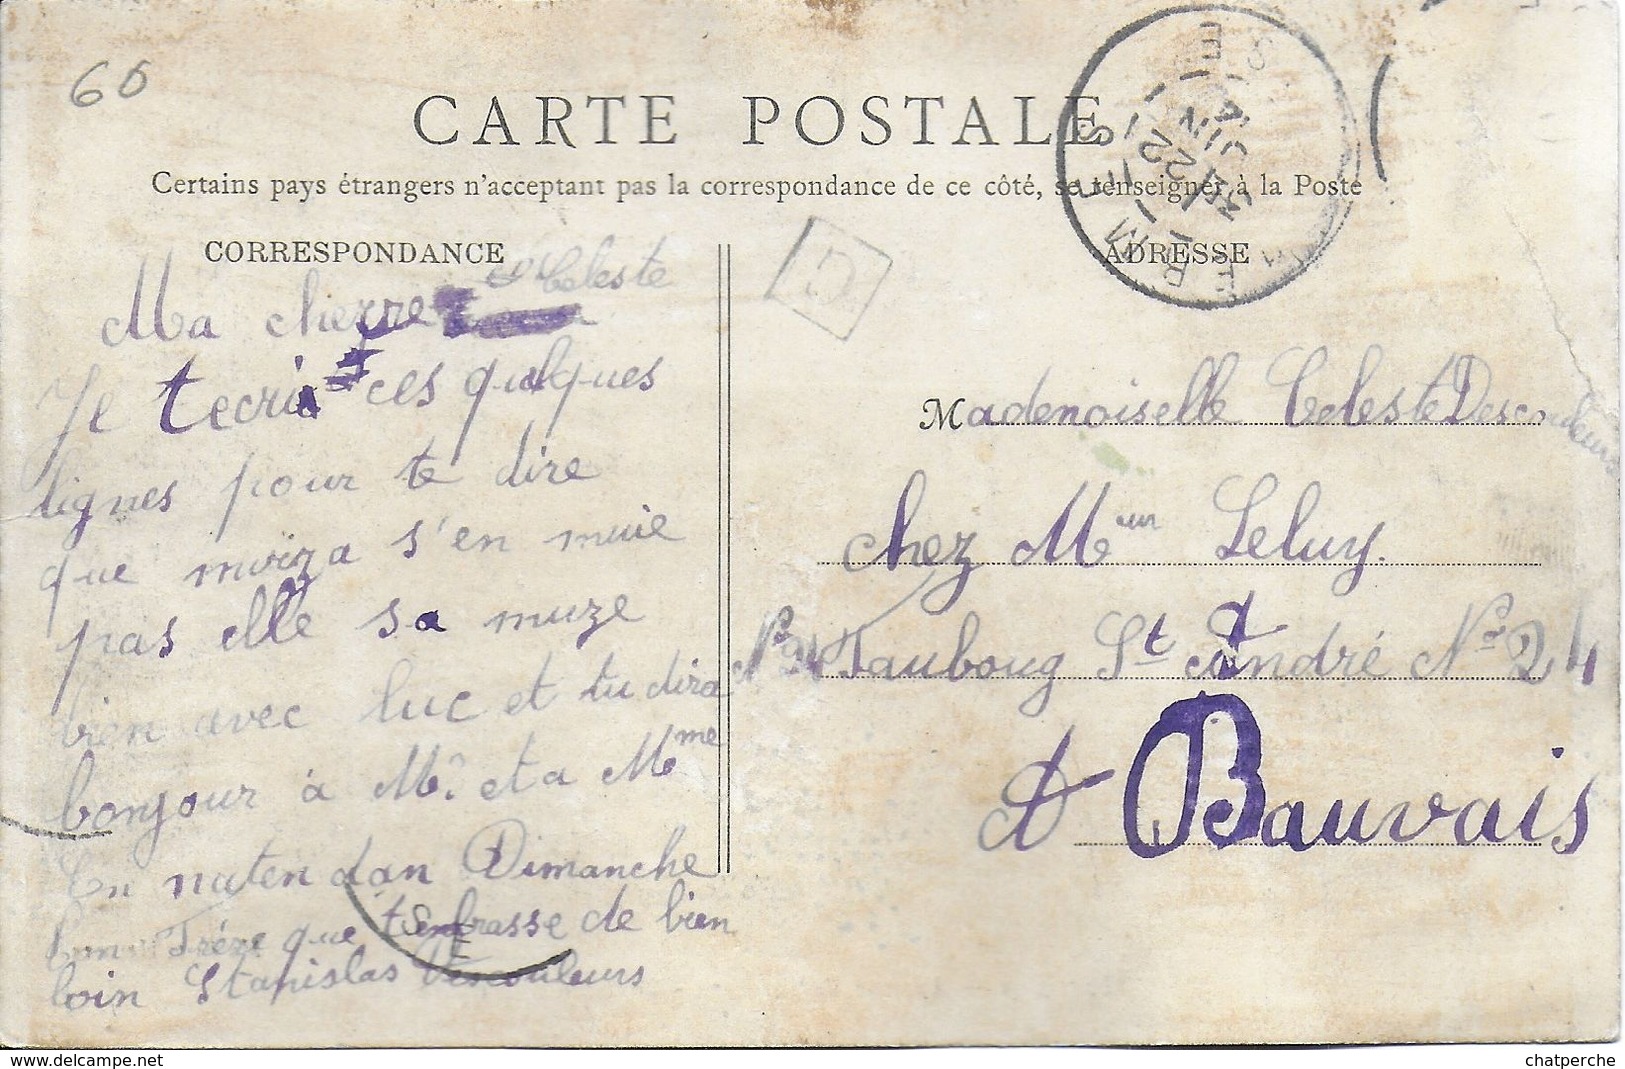 60
CARTE POSTALE
Certains pays étrangers n'acceptant pas la correspondance de ce côté, se renseigner à la Poste
CORRESPONDANCE
Ma cherre Celeste
Je tecri ces quelques
lignes pour te dire
que moïza s'en nuie
pas elle sa muze
bien avec luc et tu dira
bonjour à Mr. et a Mme
En naten dan Dimanche
Frére que tenbrasse de bien
loin Stanislas Descouleurs
ADRESSE
Mademoiselle Celeste Descouleurs
chez Mme Leluy.
Fauboug St André No 24
A Bauvais
G
22
www.delcampe.net
chatperche